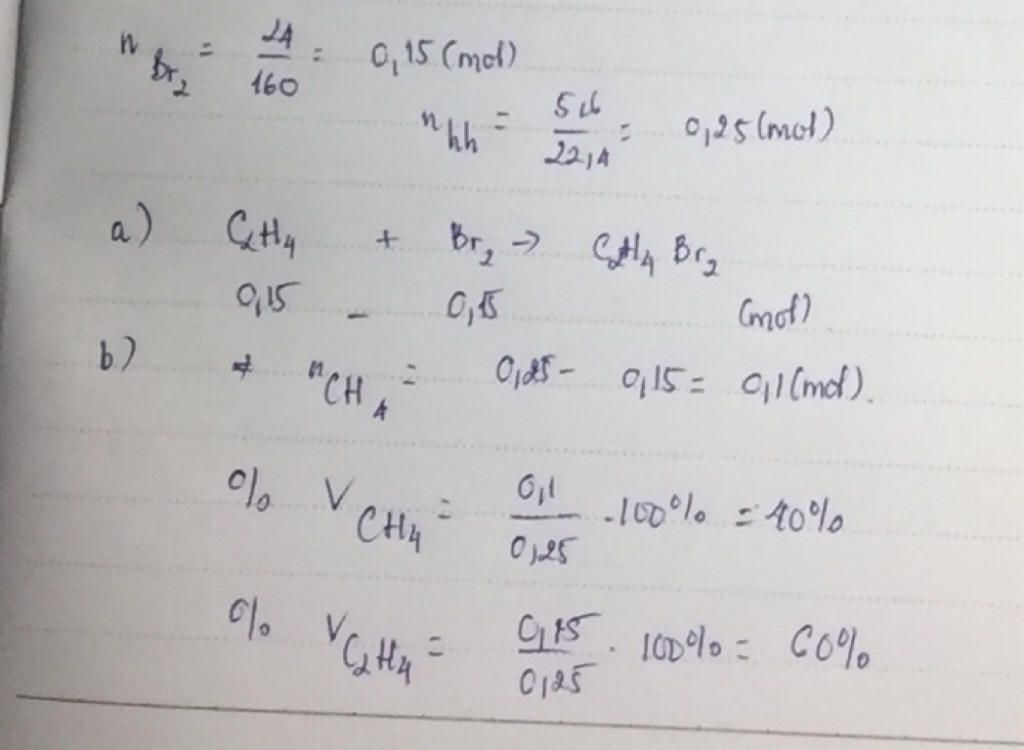 n Br₂ = 24/160 = 0,15 (mol)
n hh = 5,6/22,4 = 0,25 (mol)
a) C₂H₄ + Br₂ → C₂H₄Br₂
0,15 – 0,15 (mol)
b) ⇒ n CH₄ = 0,25 - 0,15 = 0,1 (mol).
% V CH₄ = 0,1/0,25 . 100% = 40%
% V C₂H₄ = 0,15/0,25 . 100% = 60%